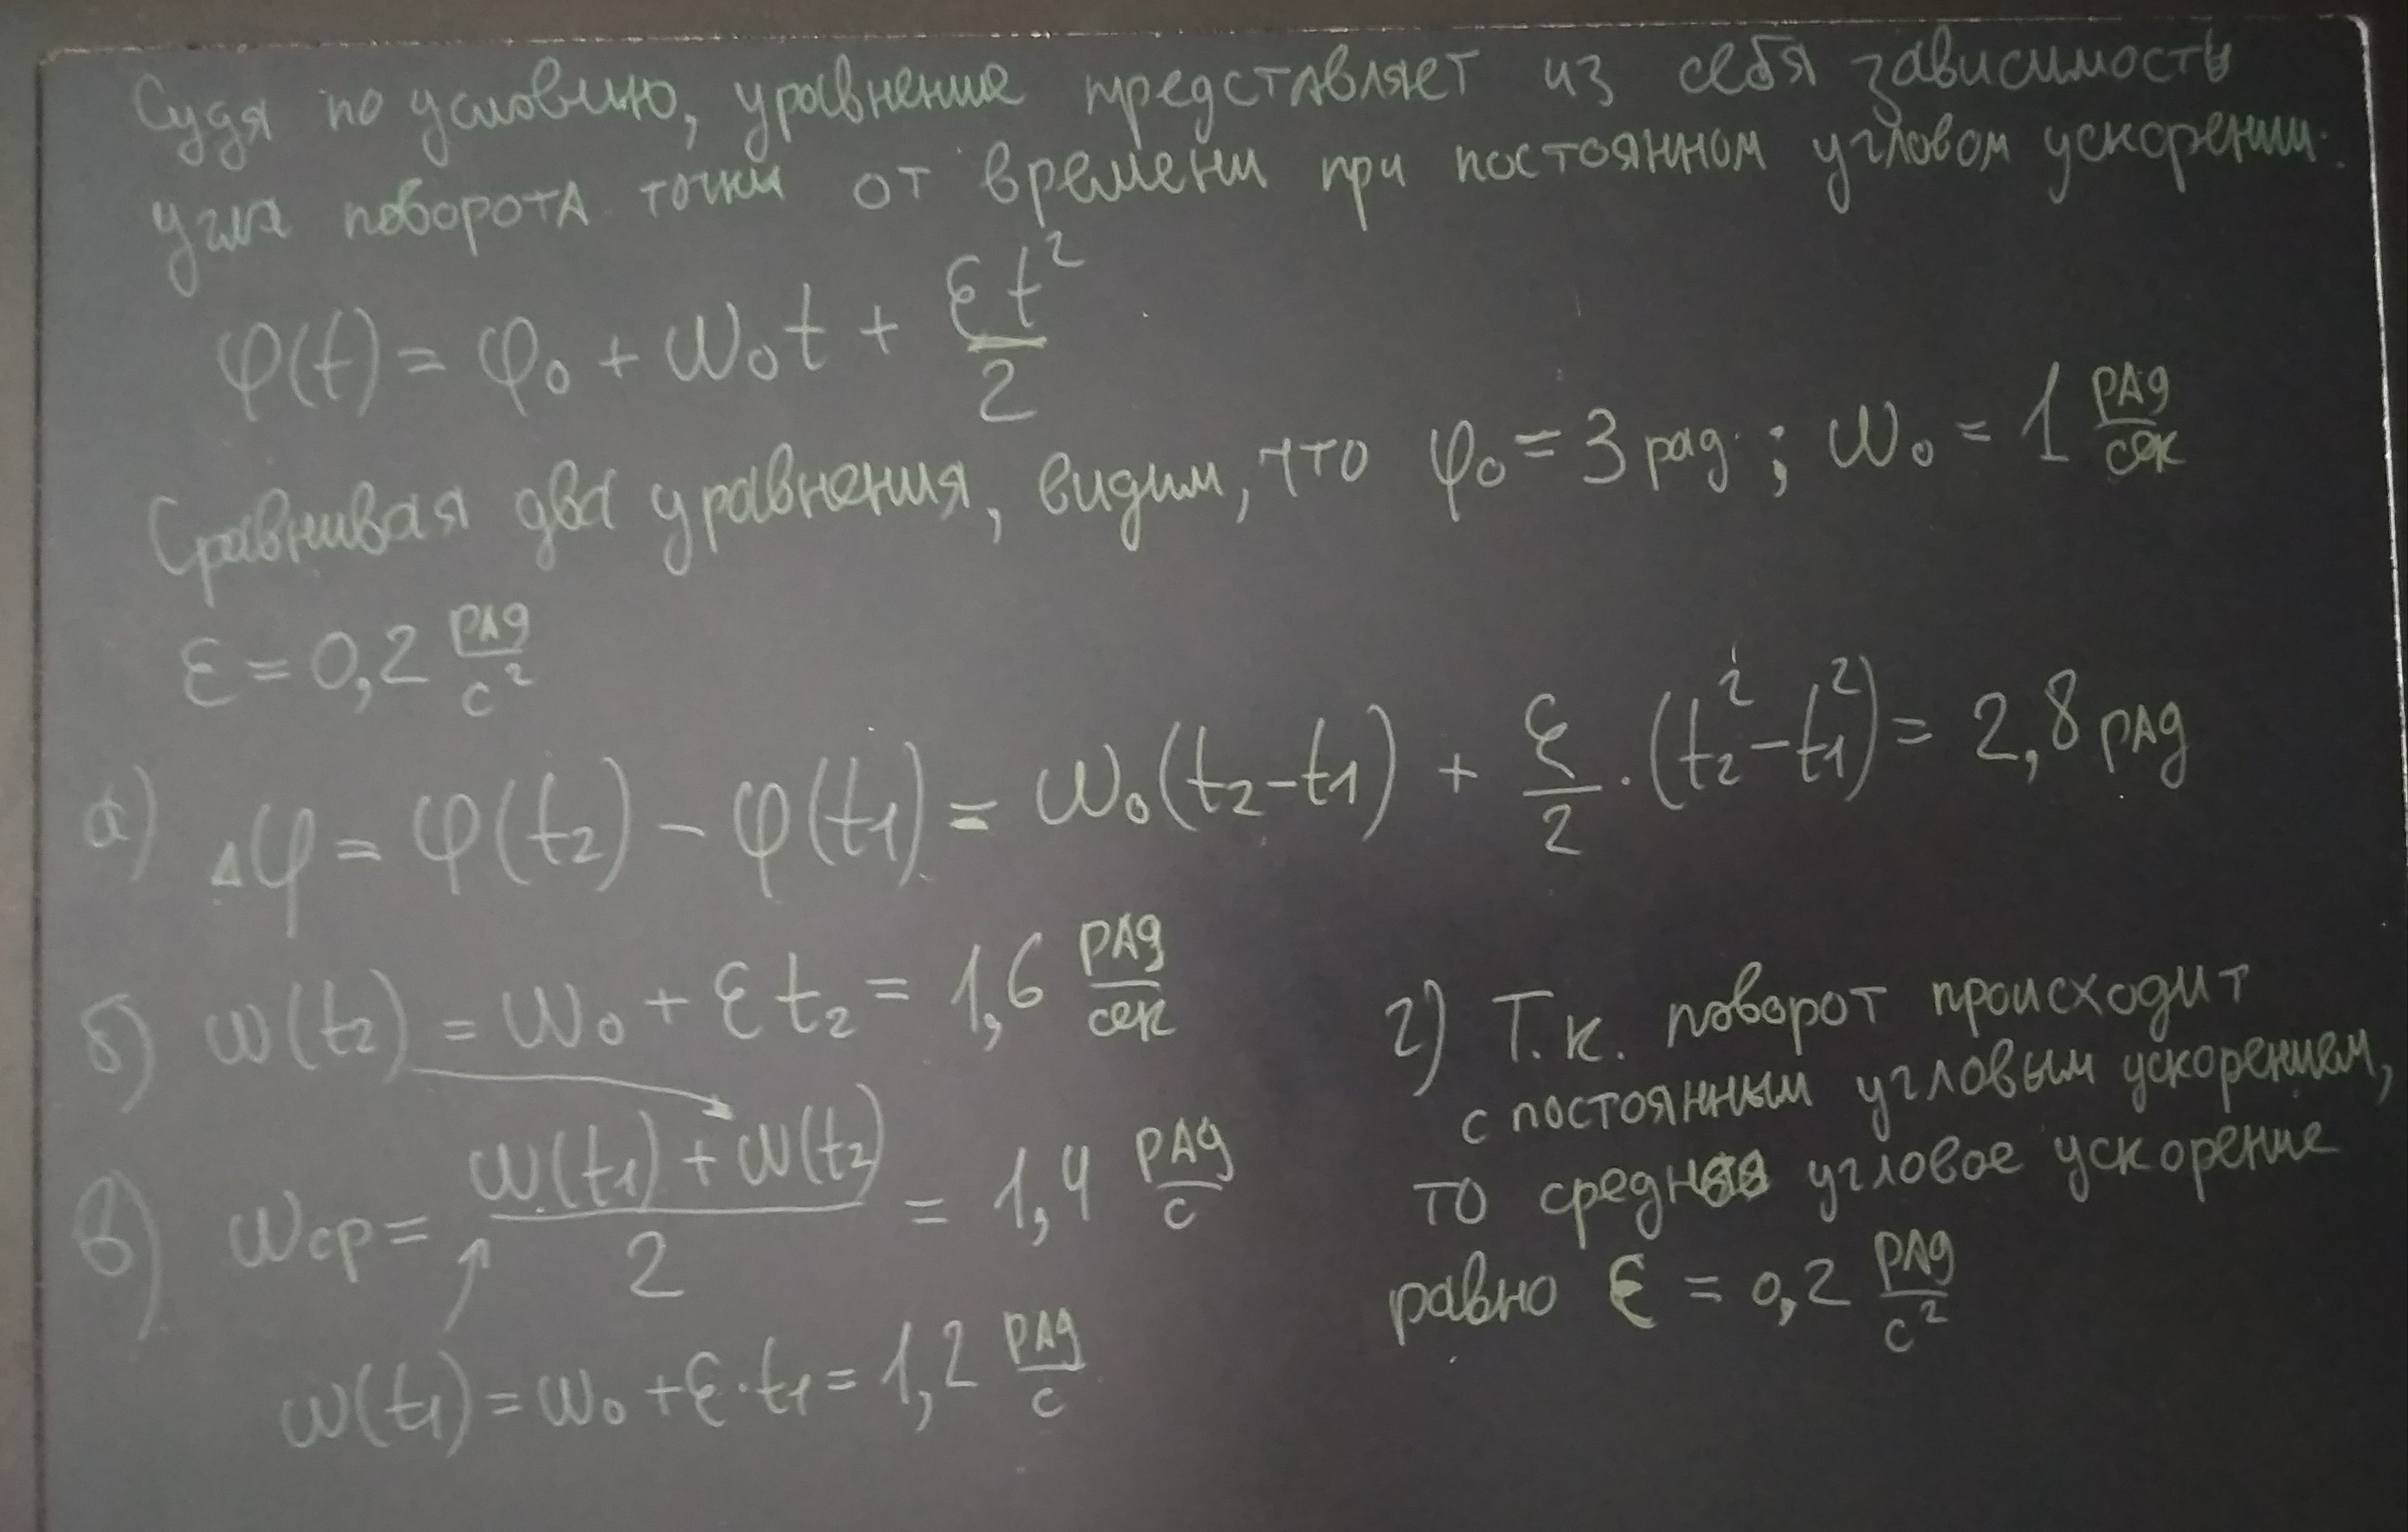 Судя по условию, уравнение представляет из себя зависимость
угла поворота точки от времени при постоянном угловом ускорении.
φ(t) = φ₀ + ω₀t + εt²/2
Сравнивая два уравнения, видим, что φ₀ = 3 рад ; ω₀ = 1 рад/сек
ε = 0,2 рад/с²
а) Δφ = φ(t₂) - φ(t₁) = ω₀(t₂-t₁) + ε/2 · (t₂² - t₁²) = 2,8 рад
б) ω(t₂) = ω₀ + εt₂ = 1,6 рад/сек
в) ωср = (ω(t₁) + ω(t₂))/2 = 1,4 рад/с
ω(t₁) = ω₀ + ε·t₁ = 1,2 рад/с
г) Т.к. поворот происходит
с постоянным угловым ускорением,
то среднее угловое ускорение
равно ε = 0,2 рад/с²